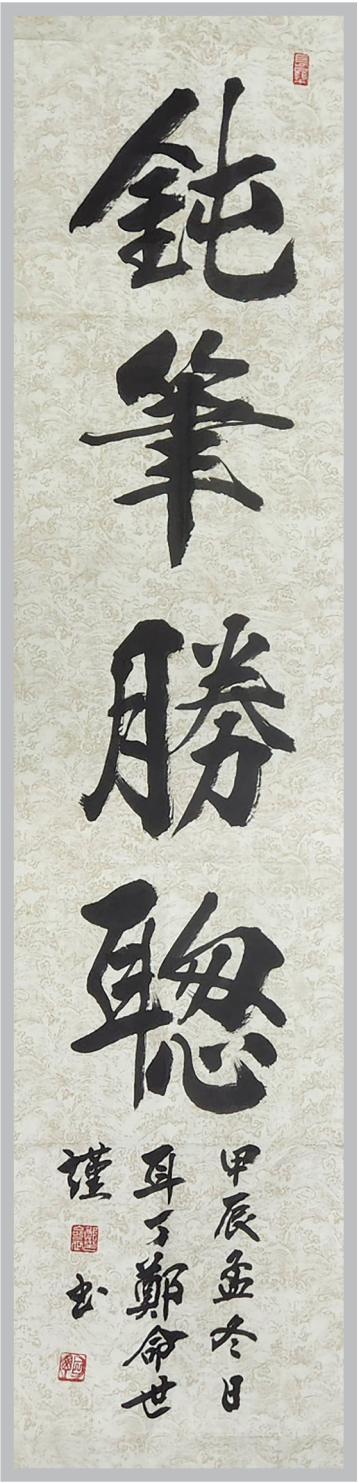 鈍筆勝聰
甲辰孟冬日
耳丁鄭命世
謹書